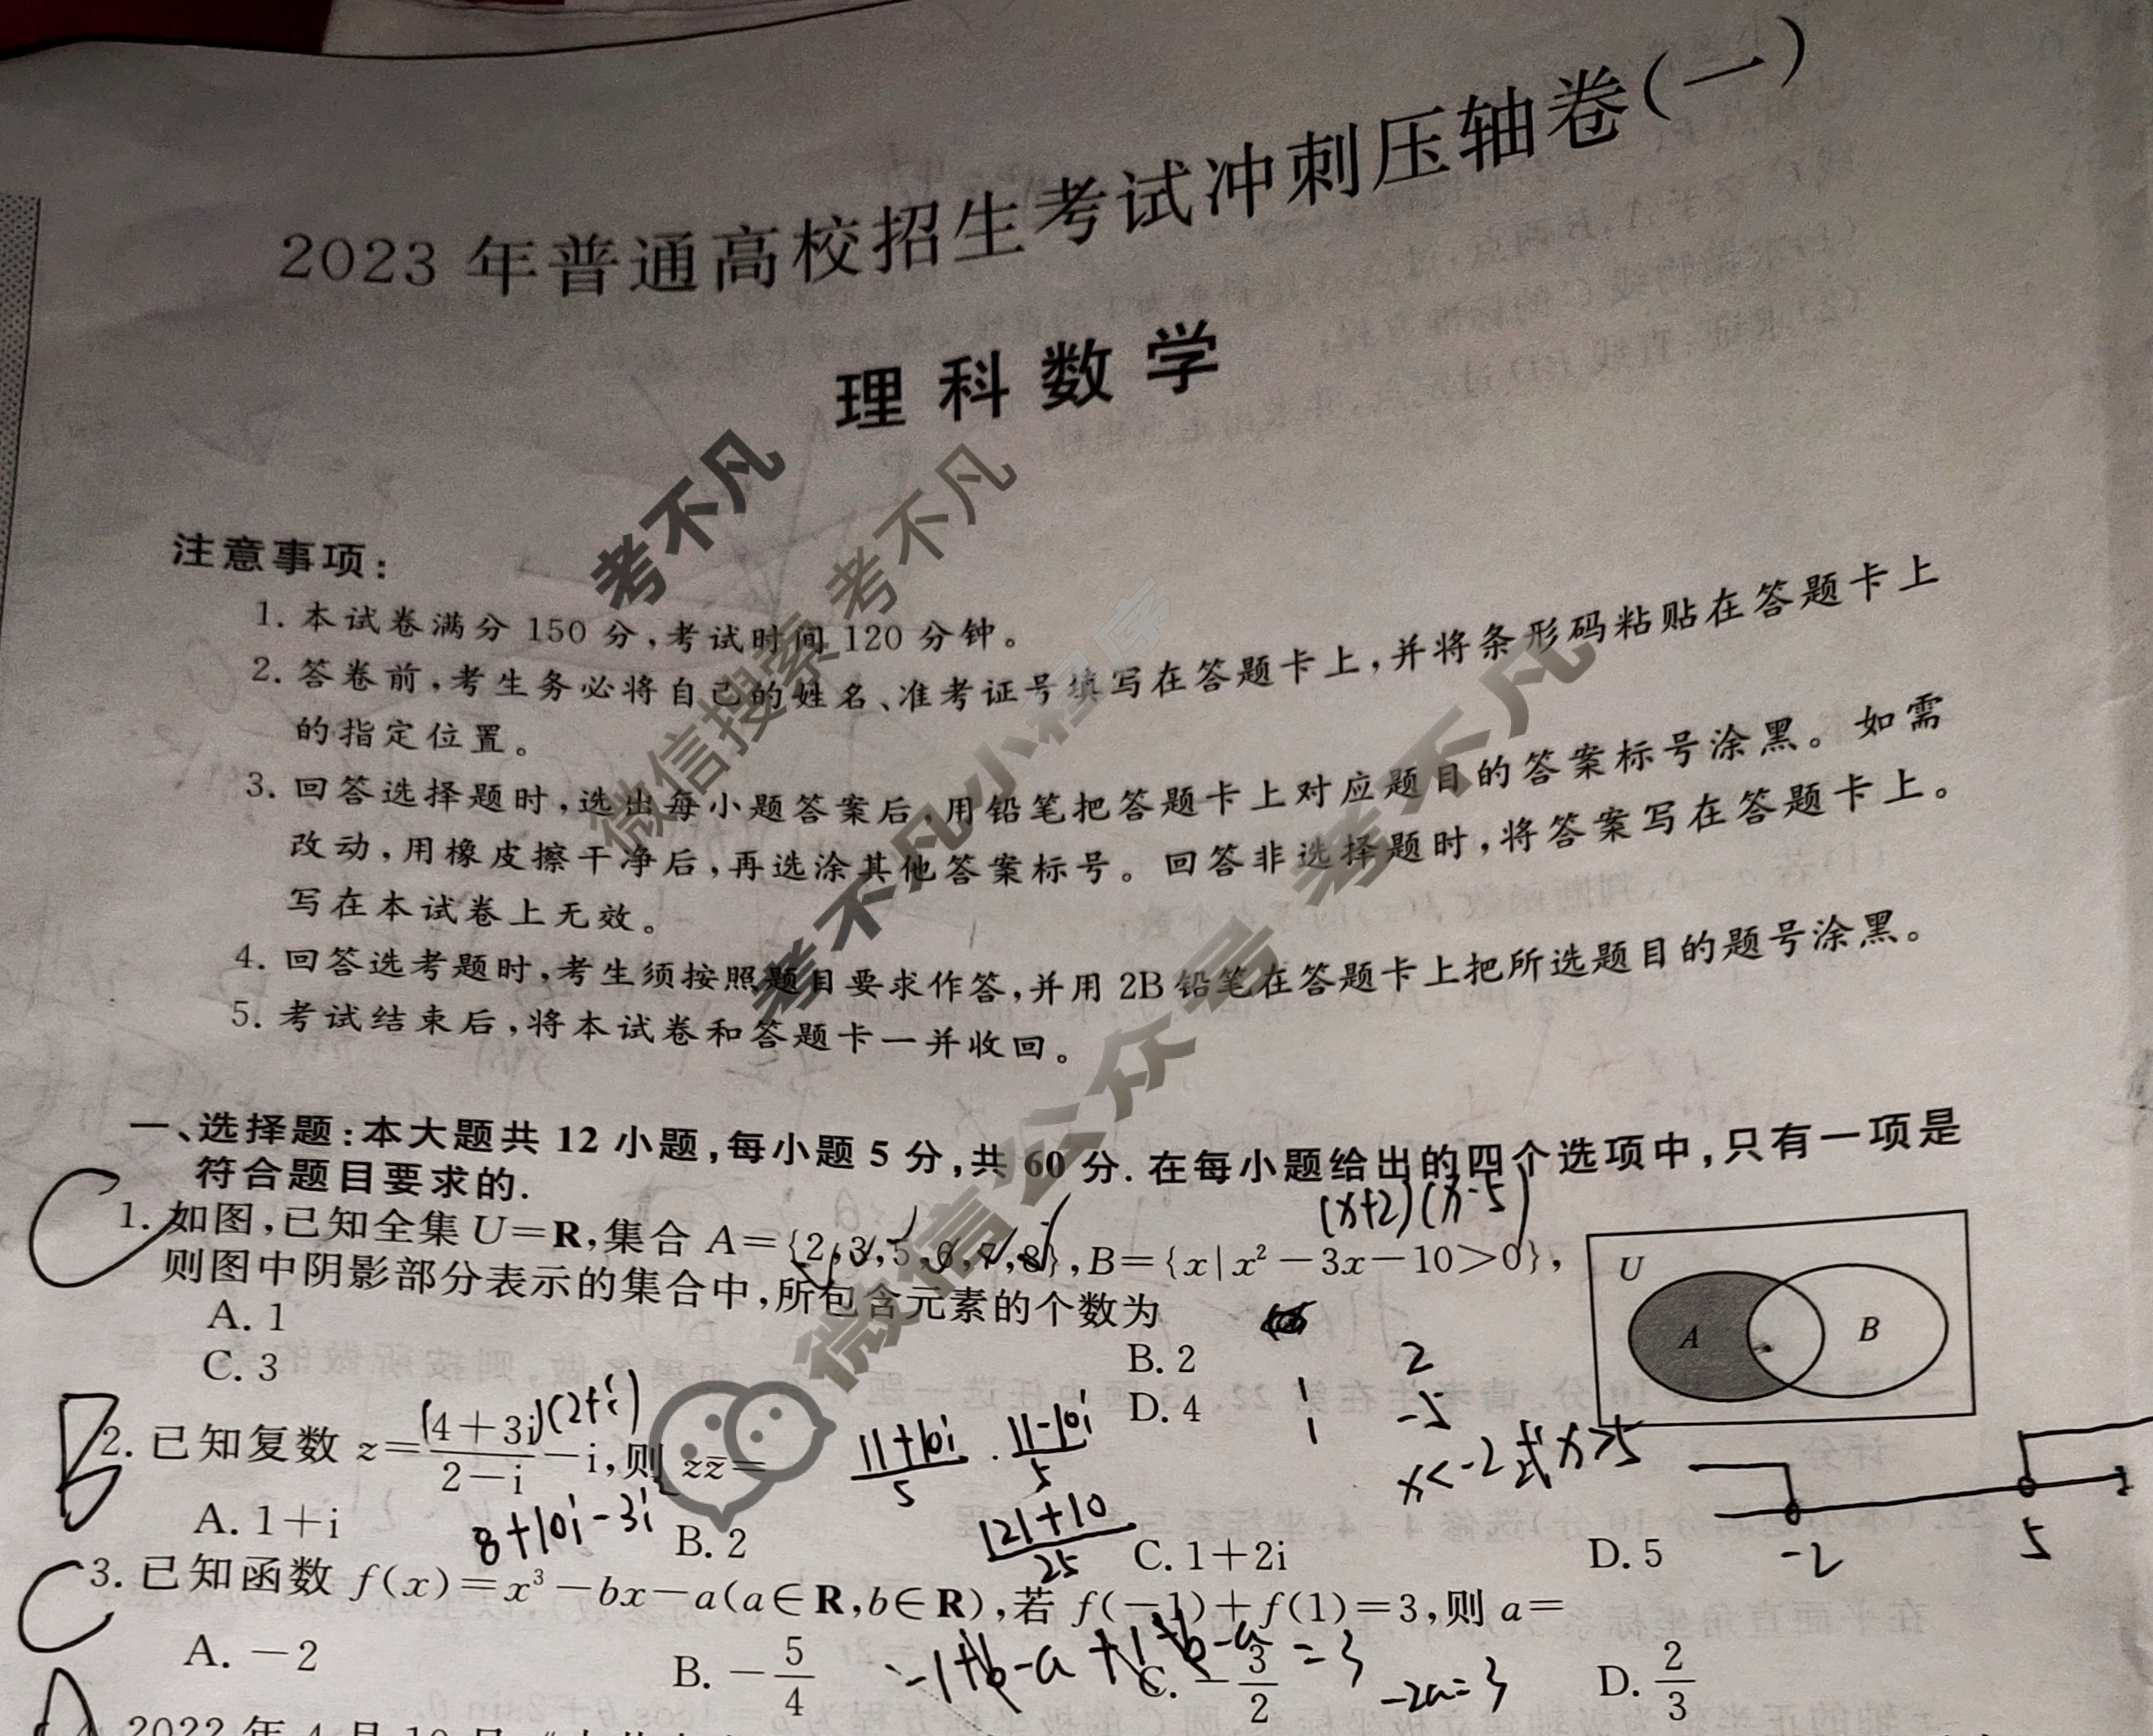 2023 年普通高校招生考试冲刺压轴卷(一)
理科数学
考不凡
微信搜索 考不凡
考不凡小程序
微信公众号 考不凡
注意事项:
1. 本试卷满分 150 分,考试时间 120 分钟。
2. 答卷前,考生务必将自己的姓名、准考证号填写在答题卡上,并将条形码粘贴在答题卡上
的指定位置。
3. 回答选择题时,选出每小题答案后,用铅笔把答题卡上对应题目的答案标号涂黑。如需
改动,用橡皮擦干净后,再选涂其他答案标号。回答非选择题时,将答案写在答题卡上。
写在本试卷上无效。
4. 回答选考题时,考生须按照题目要求作答,并用 2B 铅笔在答题卡上把所选题目的题号涂黑。
5. 考试结束后,将本试卷和答题卡一并收回。
一、选择题:本大题共 12 小题,每小题 5 分,共 60 分. 在每小题给出的四个选项中,只有一项是
符合题目要求的.
C
(x+2)(x-5)
1. 如图,已知全集 U=R,集合 A={2,3,5,6,7,8},B={x|x²-3x-10>0},
则图中阴影部分表示的集合中,所包含元素的个数为
U
A
B
A. 1
B. 2
C. 3
D. 4
1 2
1 -5
x<-2或x>5
-2
5
B
2. 已知复数 z=(4+3i)/(2-i)-i,则 zz̄=
(2+i)
8+10i-3i
11+10i/5 · 11-10i/5
121+10/25
A. 1+i
B. 2
C. 1+2i
D. 5
C
3. 已知函数 f(x)=x³-bx-a(a∈R,b∈R),若 f(-1)+f(1)=3,则 a=
-1+b-a+1-b-a=3
-2a=3
A. -2
B. -5/4
C. -3/2
D. 2/3